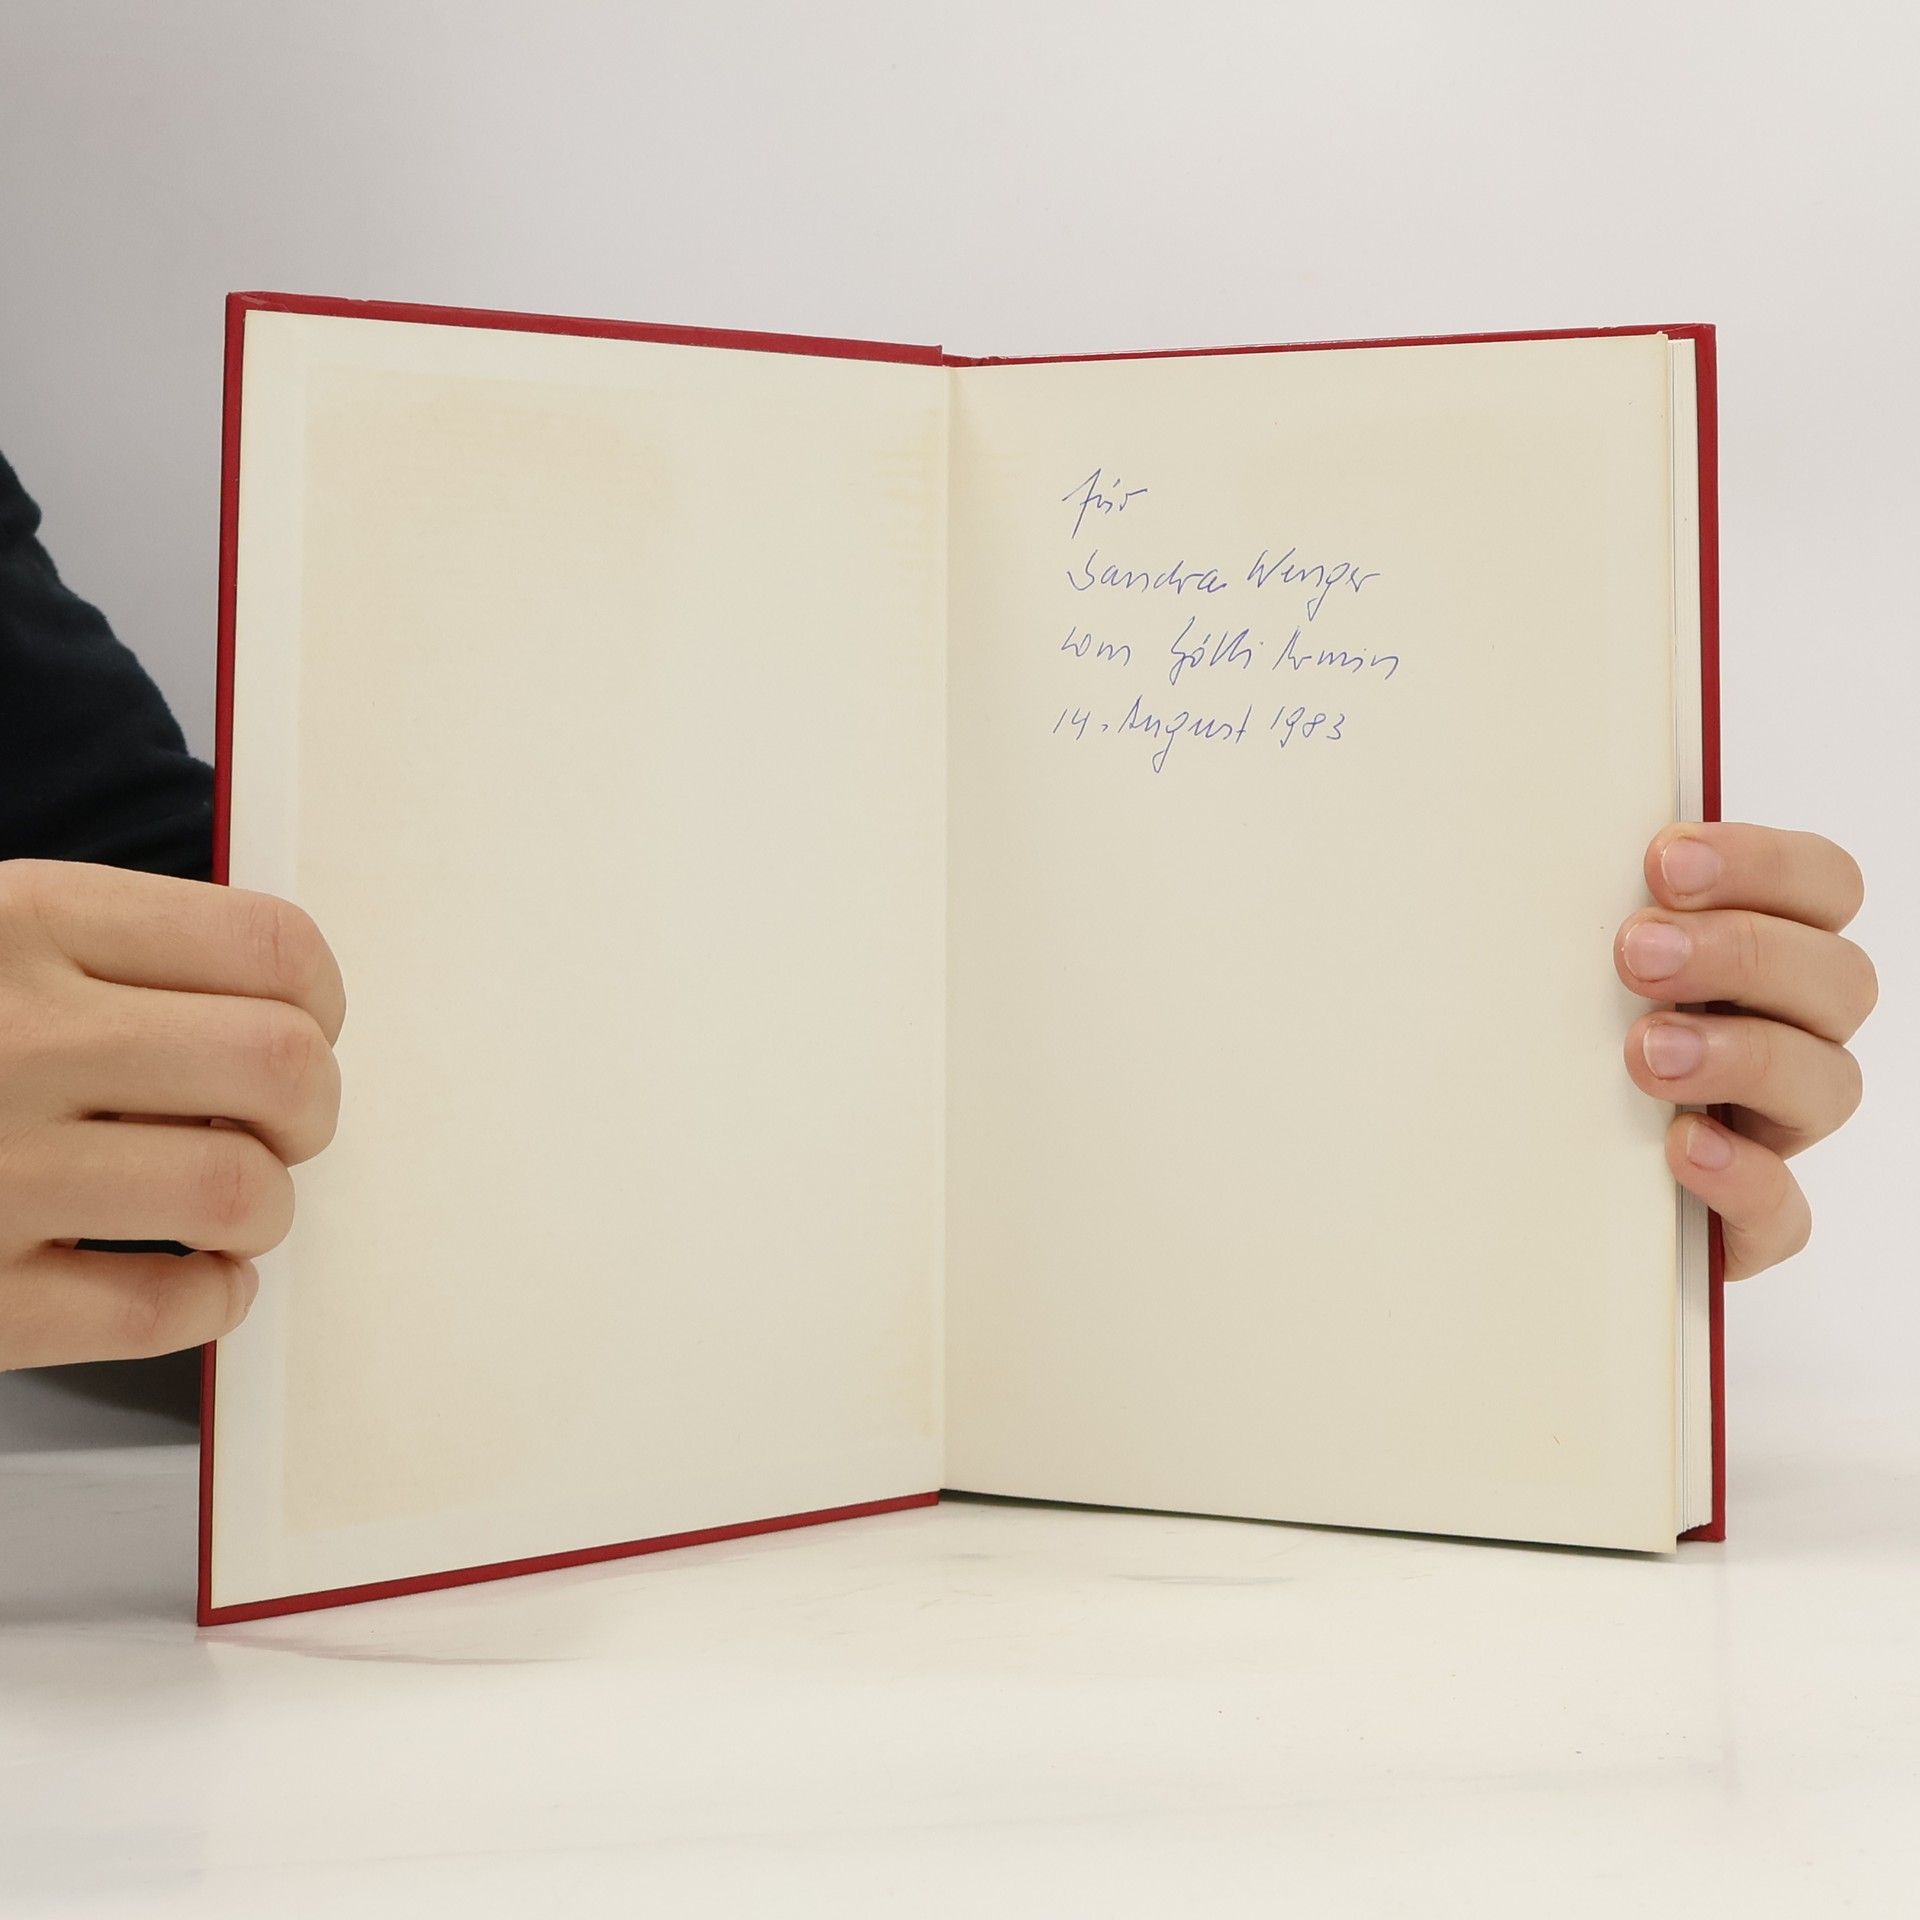 für
Sandra Wenger
vom Götti Armin
14. August 1983